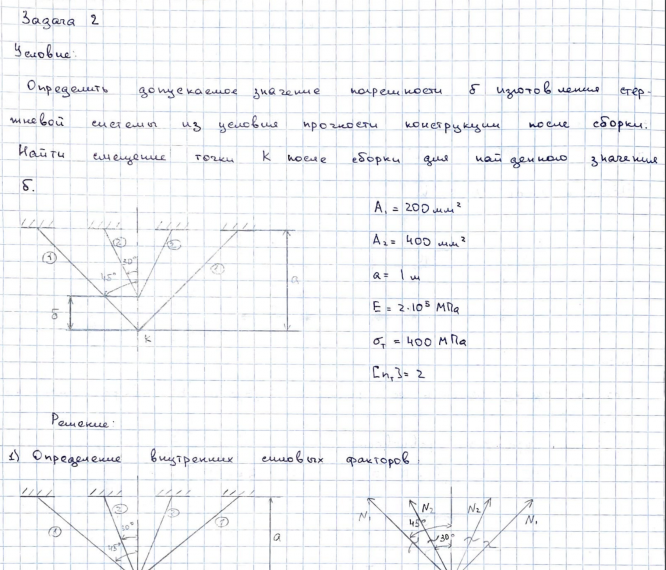 Задача 2
Условие:
Определить допускаемое значение погрешности δ изготовления стер-
жневой системы из условия прочности конструкции после сборки.
Найти смещение точки K после сборки для найденного значения
δ.
A₁ = 200 мм²
A₂ = 400 мм²
a = 1 м
E = 2·10⁵ МПа
σт = 400 МПа
[nт] = 2
① ② ② ①
30°
45°
a
δ
K
Решение:
1) Определение внутренних силовых факторов
① ② ② ①
30°
45°
a
N₁ N₂ N₂ N₁
45°
30°